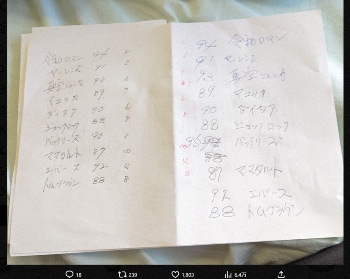 令和ロマン 94
ヤーレンズ 91
真空ジェシカ
マユリカ 89 7
ダイタク 90 6
ジョックロック 88 8
バッテリィズ
ママタルト 87 10
エバース 92
トムブラウン 88 8
94 令和ロマン
91 ヤーレンズ
真空ジェシカ
89 マユリカ
90 ダイタク
88 ジョックロック
バッテリィズ
87 ママタルト
92 エバース
88 トムブラウン
18 239 1,803 6.4万